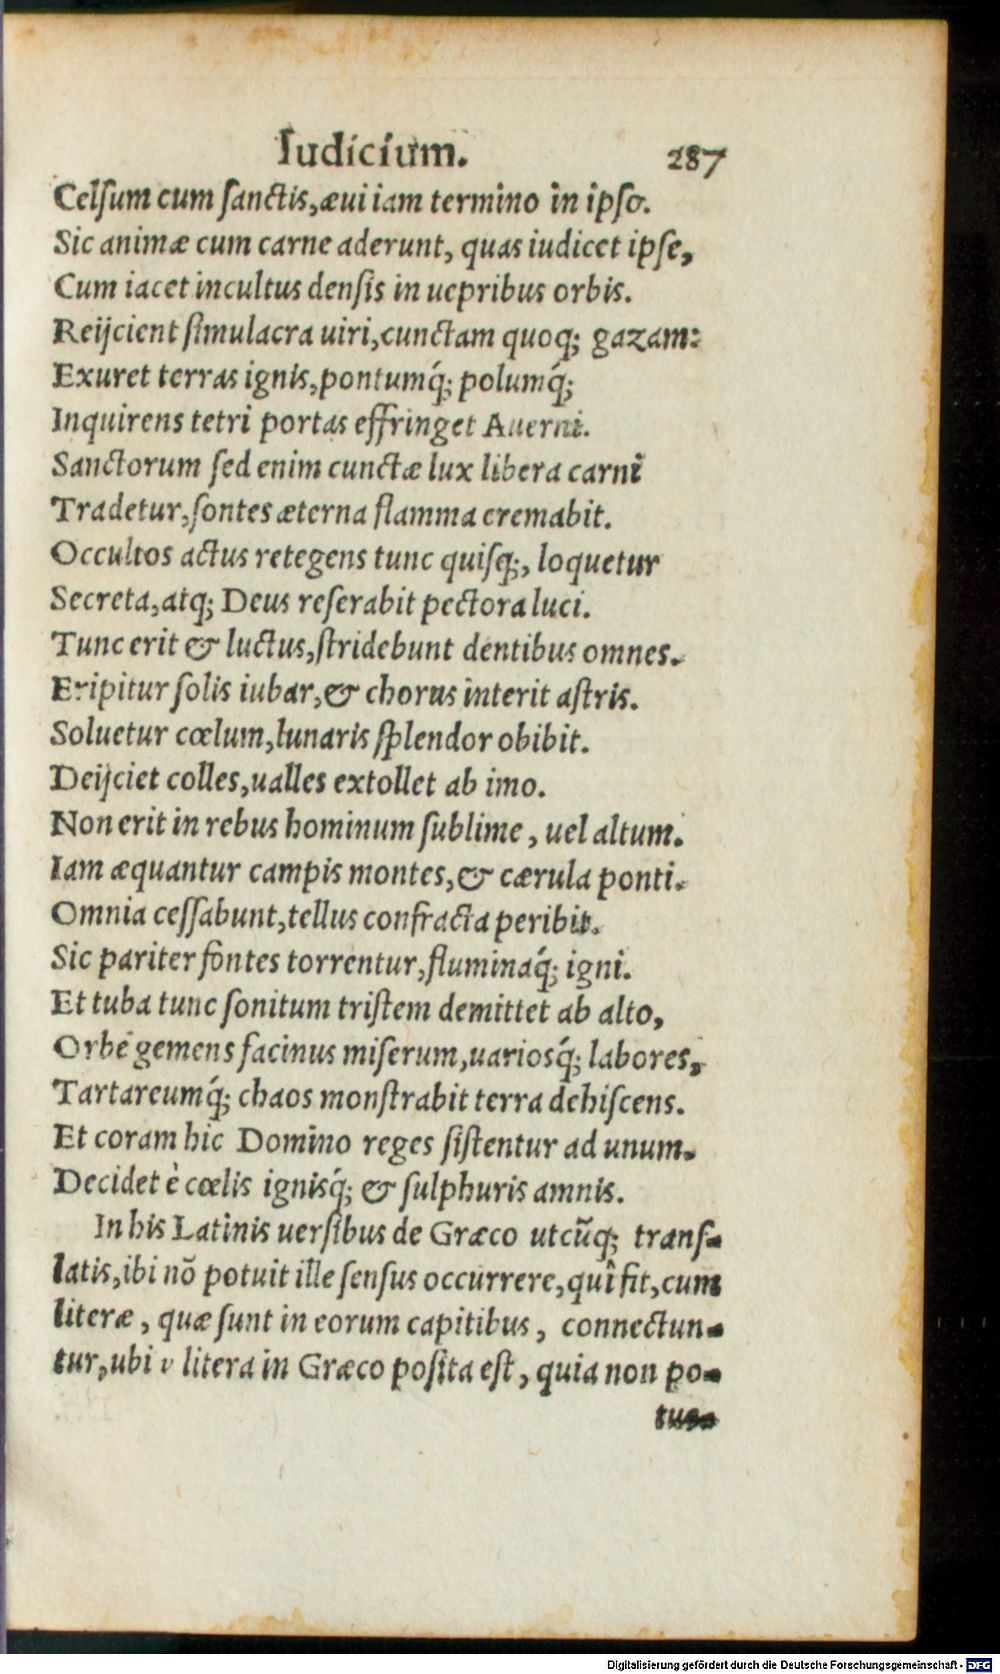 Iudicium. 287
Celſum cum ſanctis,æui iam termino in ipſo.
Sic animæ cum carne aderunt, quas iudicet ipſe,
Cum iacet incultus denſis in uepribus orbis.
Reijcient ſimulacra uiri,cunctam quoq; gazam:
Exuret terras ignis,pontumq́; polumq́;
Inquirens tetri portas effringet Auerni.
Sanctorum ſed enim cunctæ lux libera carni
Tradetur,ſontes æterna flamma cremabit.
Occultos actus retegens tunc quiſq;, loquetur
Secreta,atq; Deus reſerabit pectora luci.
Tunc erit & luctus,ſtridebunt dentibus omnes.
Eripitur ſolis iubar,& chorus interit aſtris.
Soluetur cœlum,lunaris ſplendor obibit.
Deijciet colles,ualles extollet ab imo.
Non erit in rebus hominum ſublime, uel altum.
Iam æquantur campis montes,& cærula ponti.
Omnia ceſſabunt,tellus confracta peribit.
Sic pariter fontes torrentur,fluminaq́; igni.
Et tuba tunc ſonitum triſtem demittet ab alto,
Orbe gemens facinus miſerum,uarioſq́; labores,
Tartareumq́; chaos monſtrabit terra dehiſcens.
Et coram hic Domino reges ſiſtentur ad unum.
Decidet è cœlis igniſq́; & ſulphuris amnis.
In his Latinis uerſibus de Græco utcũq; tranſ-
latis,ibi nō potuit ille ſenſus occurrere,quî fit,cum
literæ, quæ ſunt in eorum capitibus, connectun-
tur,ubi υ litera in Græco poſita eſt, quia non po-
tue-
Digitalisierung gefördert durch die Deutsche Forschungsgemeinschaft - DFG